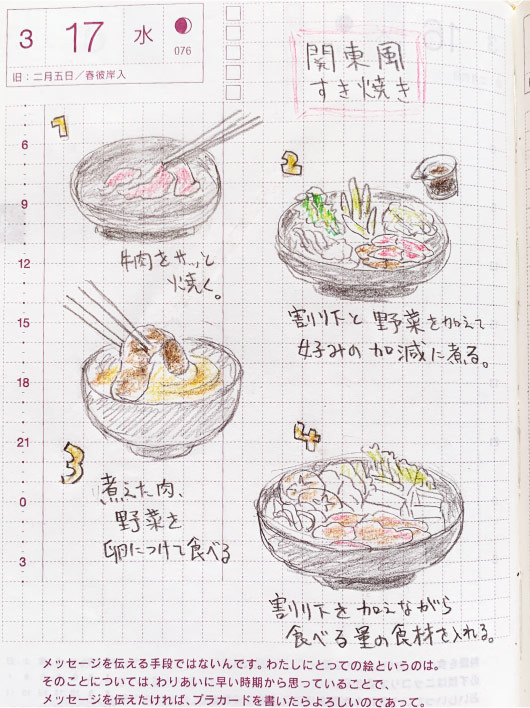 3 17 水
076
旧：二月五日／春彼岸入
関東風
すき焼き
6
9
12
15
18
21
0
3
1
牛肉をサッと
焼く。
2
割り下と野菜を加えて
好みの加減に煮る。
3
煮えた肉、
野菜を
卵につけて食べる
4
割り下を加えながら
食べる量の食材を入れる。
メッセージを伝える手段ではないんです。わたしにとっての絵というのは。
そのことについては、わりあいに早い時期から思っていることで、
メッセージを伝えたければ、プラカードを書いたらよろしいのであって。